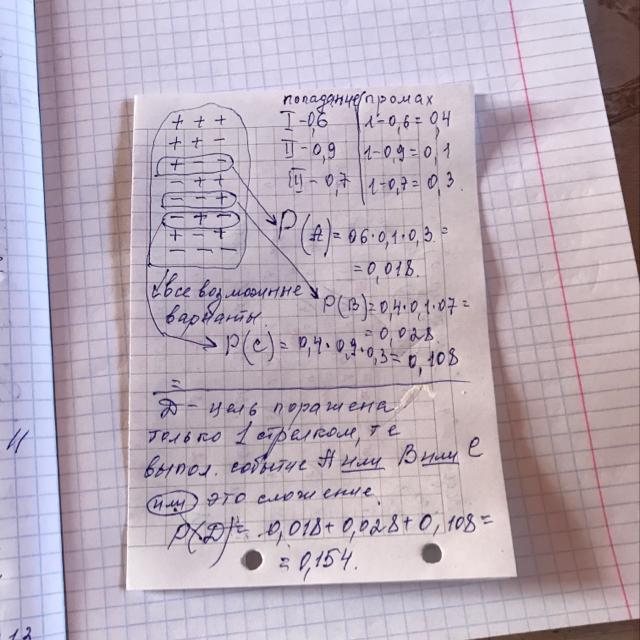 попадание промах
+ + +
I - 0,6 1-0,6 = 0,4
+ + -
II - 0,9 1-0,9 = 0,1
+ - -
III - 0,7 1-0,7 = 0,3
- + +
- - +
- + -
+ - +
- - -
P(A) = 06·0,1·0,3 =
= 0,018.
все возможные
варианты
P(B) = 0,4·0,1·07 =
= 0,028
P(C) = 0,4·0,9·0,3 = 0,108
=
D - цель поражена
только 1 стрелком, т е
выпол. событие A или B или C
или это сложение.
P(D) = 0,018 + 0,028 + 0,108 =
= 0,154.
11
12